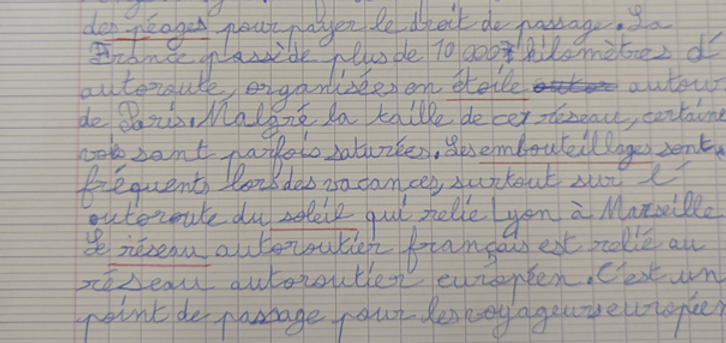 des péages pour payer le droit de passage. La
France possède plus de 10 000 kilomètres d'
autoroute, organisées en étoile autour
de Paris. Malgré la taille de cet réseau, certaine
sont parfois saturées. Les embouteillages sont
fréquents lors des vacances, surtout sur l'
autoroute du soleil qui relie Lyon à Marseille
Le réseau autoroutier français est relié au
réseau autoroutier européen. C'est un
point de passage pour les voyageurs europée